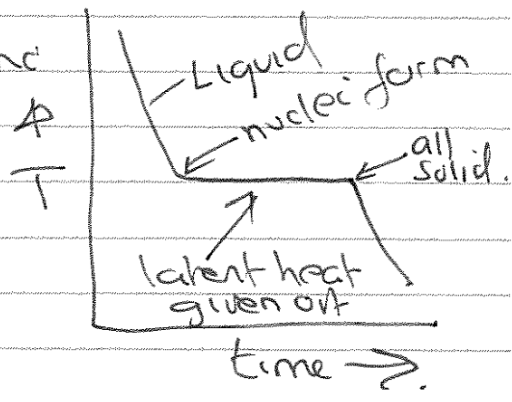 Liquid
nuclei form
all
solid.
T
latent heat
given off
time